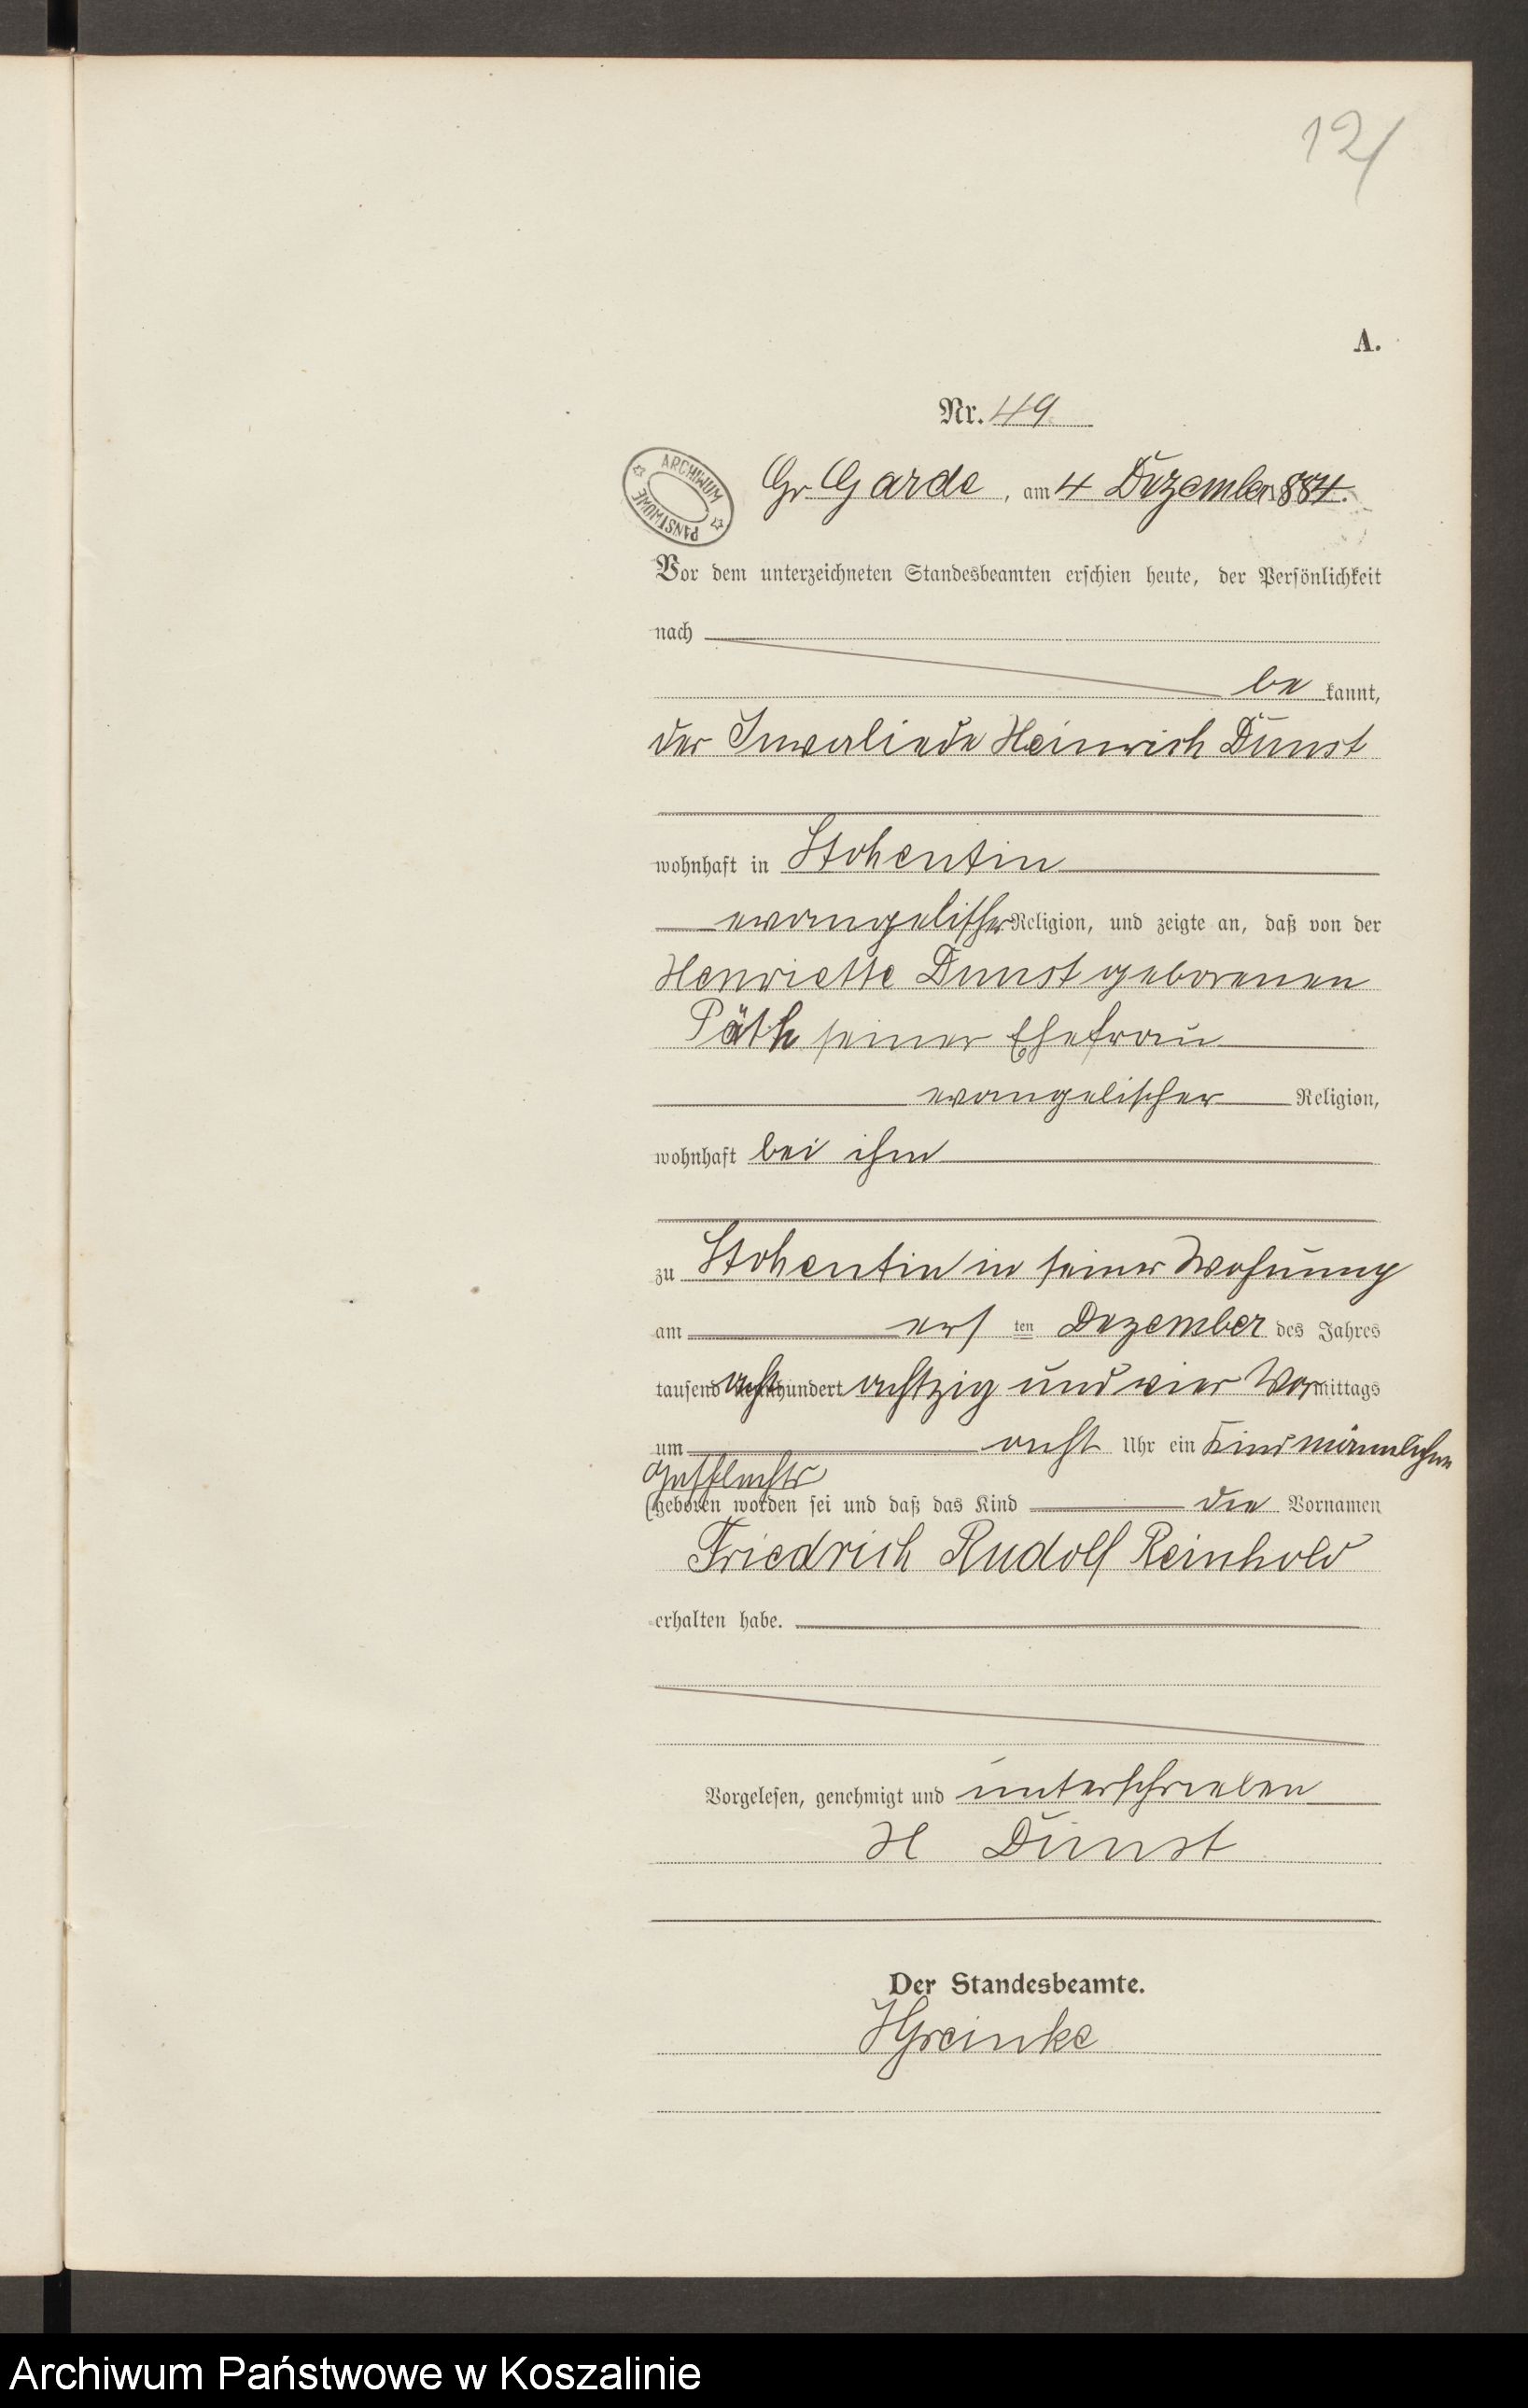 121
A.
Nr. 49
ARCHIWUM PAŃSTWOWE
Gr Garde, am 4 Dezember 1884.
Vor dem unterzeichneten Standesbeamten erschien heute, der Persönlichkeit
nach
be kannt,
der Invaliede Heinrich Dunst
wohnhaft in Stohentin
evangelischer Religion, und zeigte an, daß von der
Henriette Dunst geborenen
Päth seiner Ehefrau
evangelischer Religion,
wohnhaft bei ihm
zu Stohentin in seiner Wohnung
am ers ten Dezember des Jahres
tausend acht hundert achtzig und vier Vormittags
um acht Uhr ein Kind männlichen
Geschlechts
geboren worden sei und daß das Kind die Vornamen
Friedrich Rudolf Reinhold
erhalten habe.
Vorgelesen, genehmigt und unterschrieben
H Dunst
Der Standesbeamte.
HGreinke
Archiwum Państwowe w Koszalinie